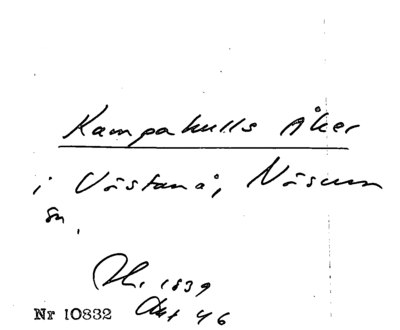 Kampahulls Åker
i Västanå, Näsum
sn.
Hs. 1839
Akt 46
Nr 10832